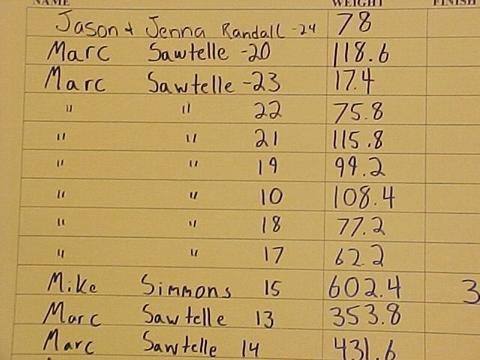 NAME WEIGHT FINISH
Jason + Jenna Randall -24 78
Marc Sawtelle -20 118.6
Marc Sawtelle -23 17.4
" " 22 75.8
" " 21 115.8
" " 19 99.2
" " 10 108.4
" " 18 77.2
" " 17 62.2
Mike Simmons 15 602.4 3
Marc Sawtelle 13 353.8
Marc Sawtelle 14 431.6